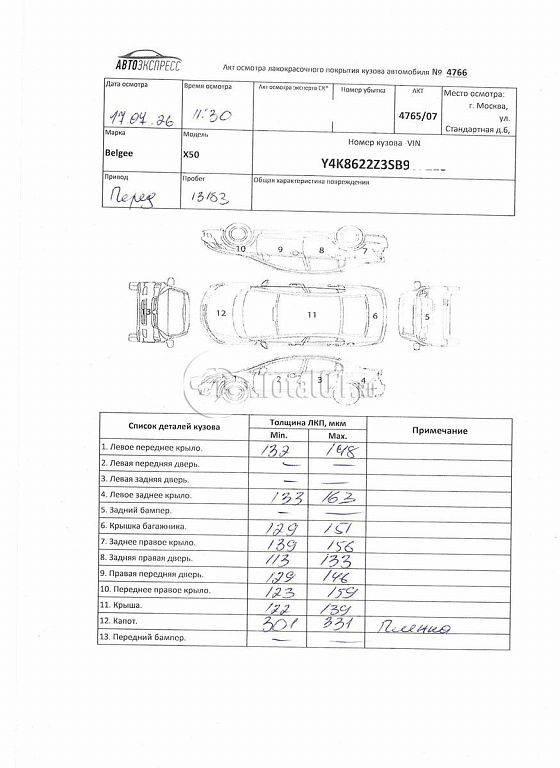 АВТОЭКСПРЕСС
Акт осмотра лакокрасочного покрытия кузова автомобиля № 4766
Дата осмотра Время осмотра Акт осмотра эксперта СК* Номер убытка АКТ Место осмотра:
17.07.26 11:30 4765/07 г. Москва,
ул.
Стандартная д.6,
Марка Модель Номер кузова -VIN
Belgee X50 Y4K8622Z3SB9
Привод Пробег Общая характеристика повреждения
Перед 13183
10 9 8 7
13 12 11 6 5
1 2 3 4
Total01.ru
Список деталей кузова Толщина ЛКП, мкм Примечание
Min. Max.
1. Левое переднее крыло. 132 148
2. Левая передняя дверь. — —
3. Левая задняя дверь. — —
4. Левое заднее крыло. 133 163
5. Задний бампер. — —
6. Крышка багажника. 129 151
7. Заднее правое крыло. 139 156
8. Задняя правая дверь. 113 133
9. Правая передняя дверь. 129 146
10. Переднее правое крыло. 123 159
11. Крыша. 122 139
12. Капот. 301 331 Пленка
13. Передний бампер. — —